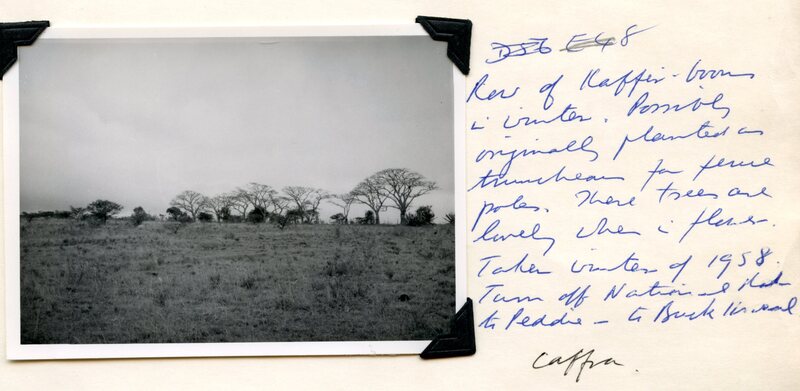 D56 E48
Row of Kaffir-booms
in winter. Possibly
originally planted as
truncheons for fence
poles. These trees are
lovely when in flower.
Taken winter of 1958.
Turn off National
to Peddie – to Buck
caffra.